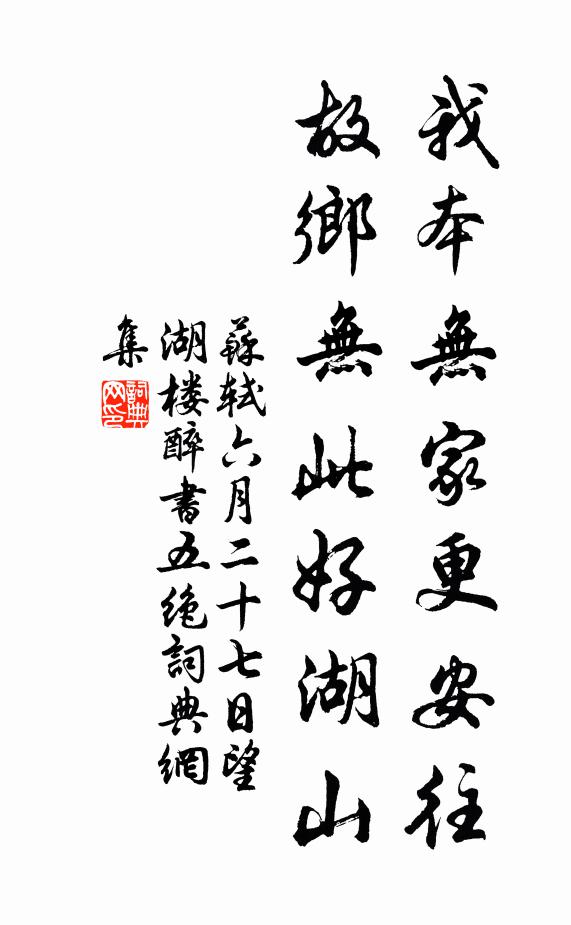 我本無家更安往
故鄉無此好湖山
蘇軾六月二十七日望
湖楼醉書五绝詞典網
集
詞典
网印